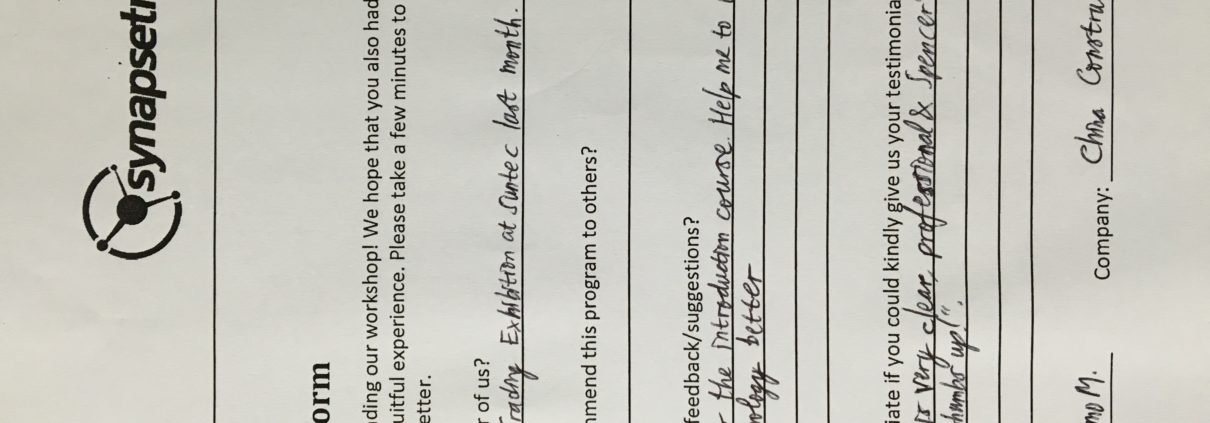 synapsetr
orm
nding our workshop! We hope that you also had
uitful experience. Please take a few minutes to
etter.
r of us?
rading Exhibition at Suntec last month.
mmend this program to others?
feedback/suggestions?
r the introduction course. Help me to
ology better
iate if you could kindly give us your testimonia
is very clear, professional & Spencer
humbs up!".
mo M.
Company: China Constru